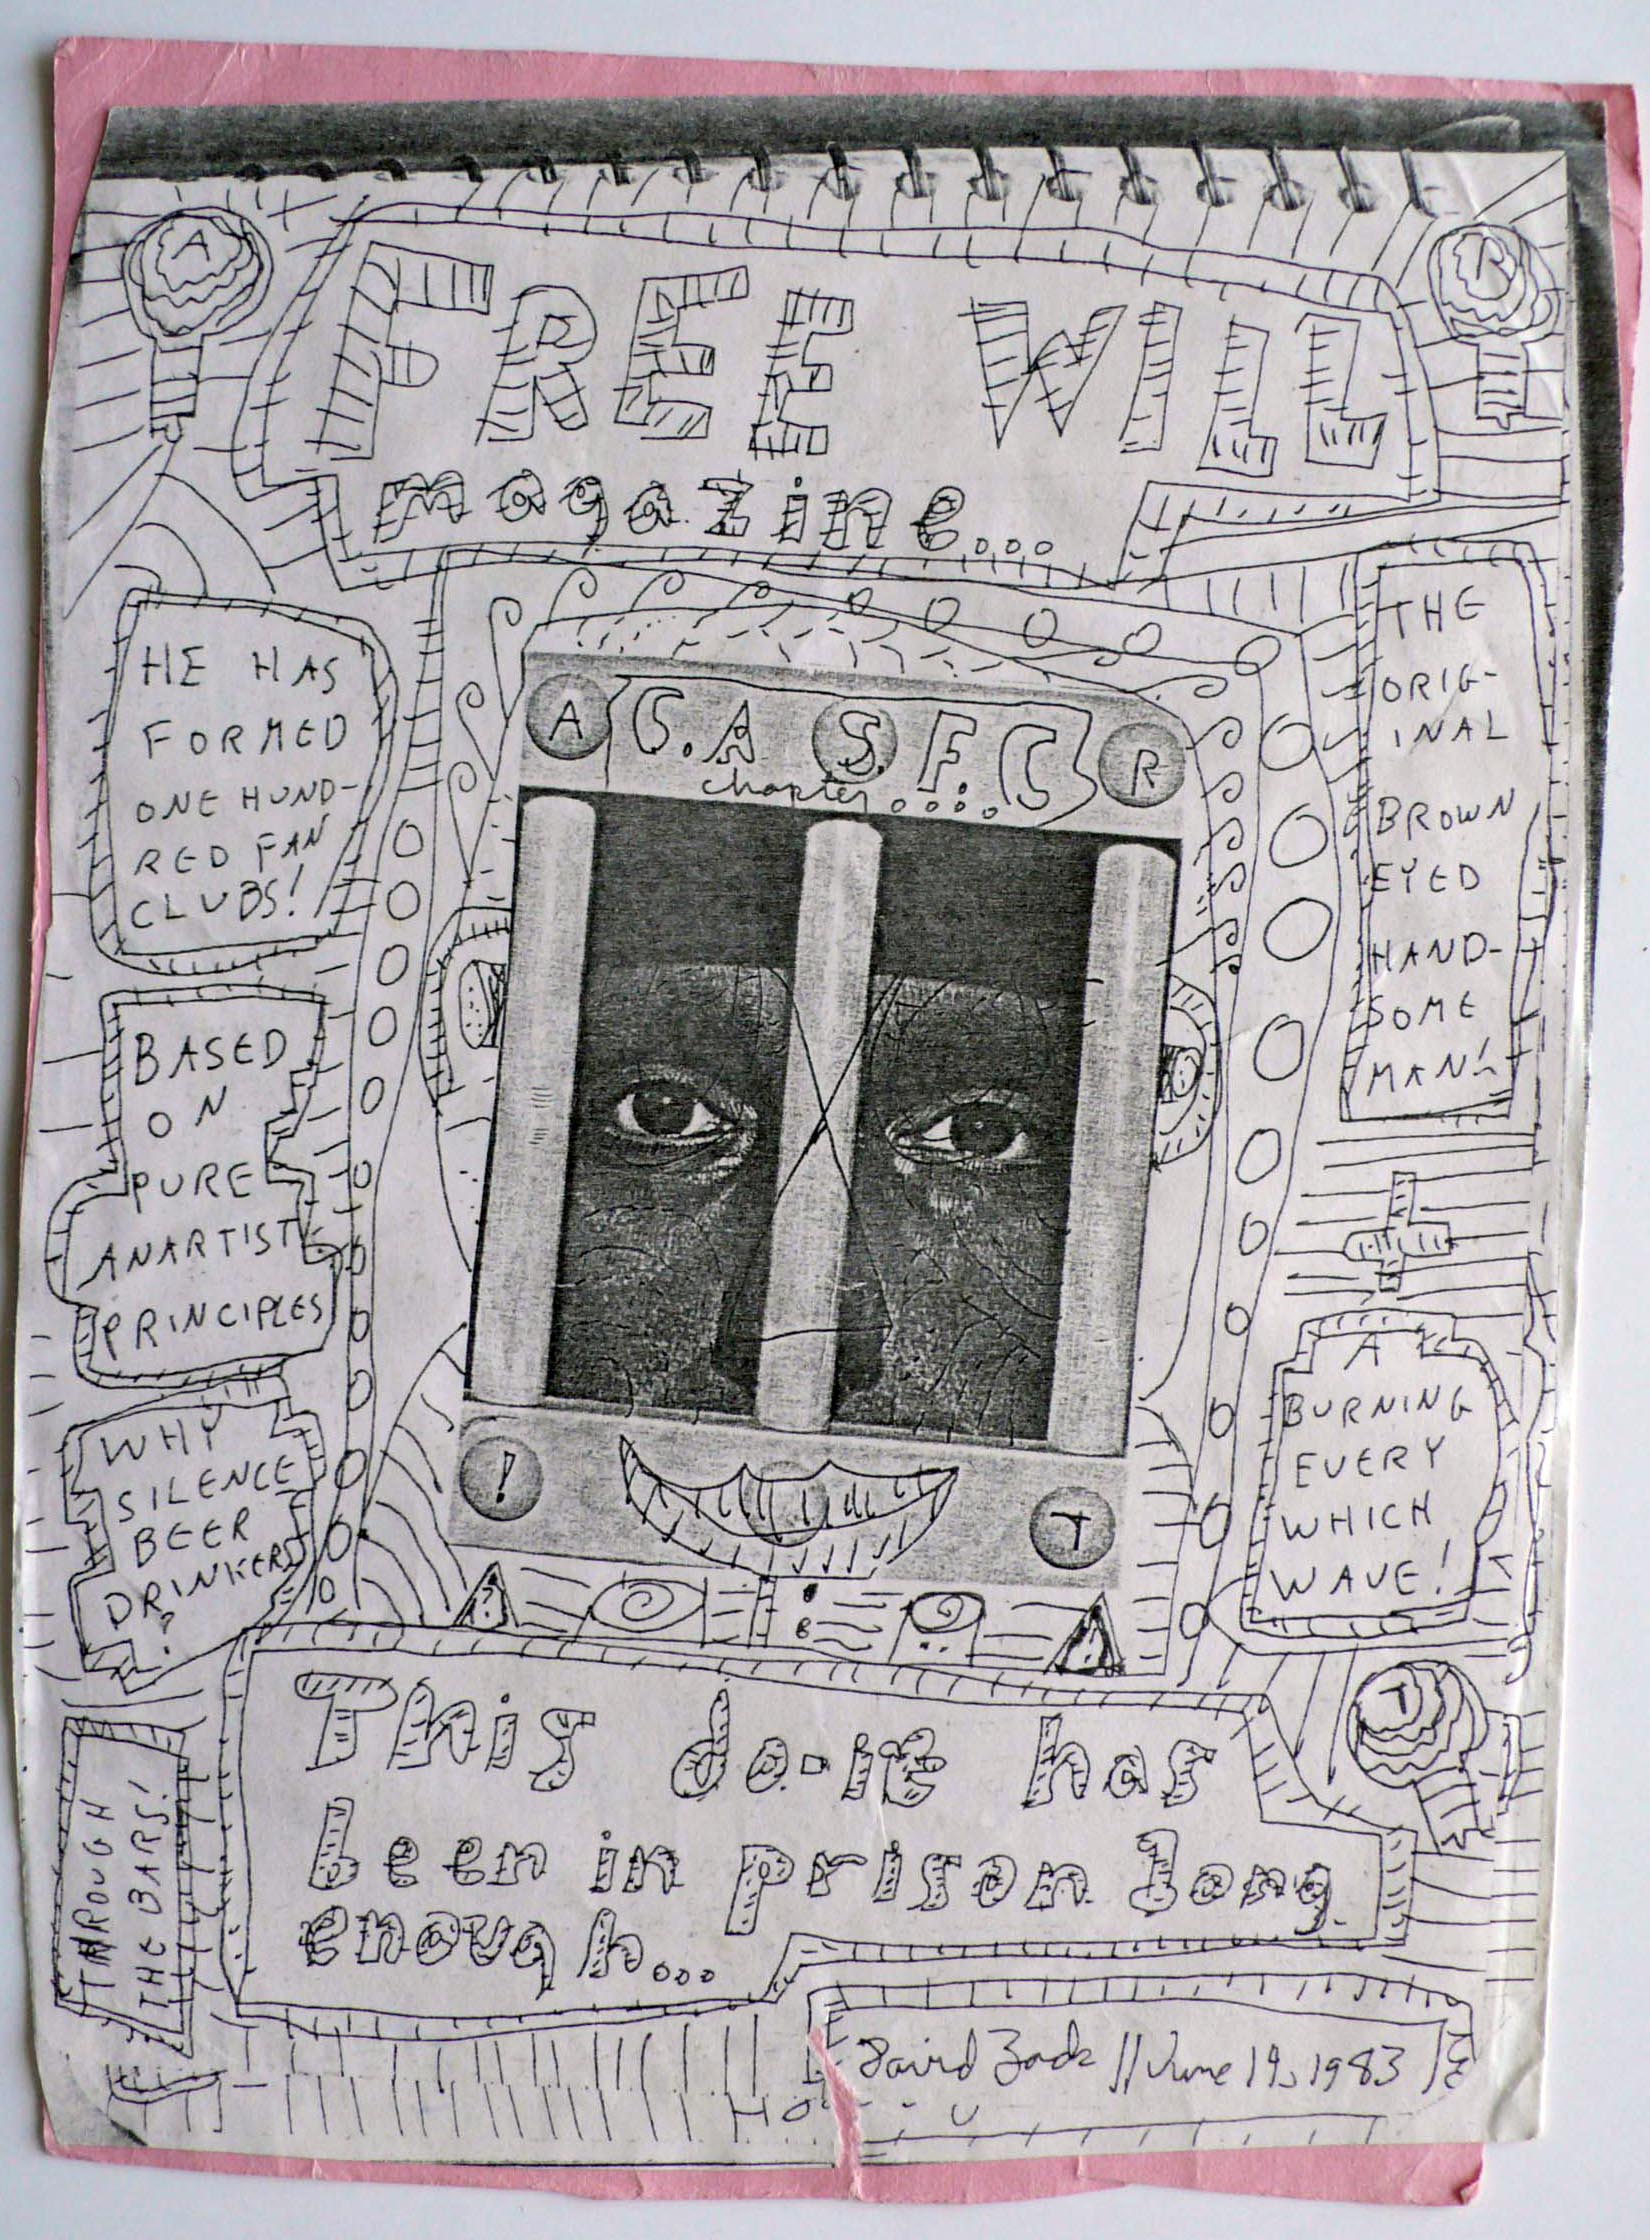 A
R
FREE WILL
magazine...
HE HAS
FORMED
ONE HUND-
RED FAN
CLUBS!
BASED
ON
PURE
ANARTIST
PRINCIPLES
WHY
SILENCE
BEER
DRINKERS
?
THROUGH
THE BARS!
A
C.A.S.F.C
R
chapter....
!
T
?
!
THE
ORIG-
INAL
BROWN
EYED
HAND-
SOME
MAN!
A
BURNING
EVERY
WHICH
WAVE!
T
This do-it has
been in prison long
enough...
David Zack // June 19, 1983